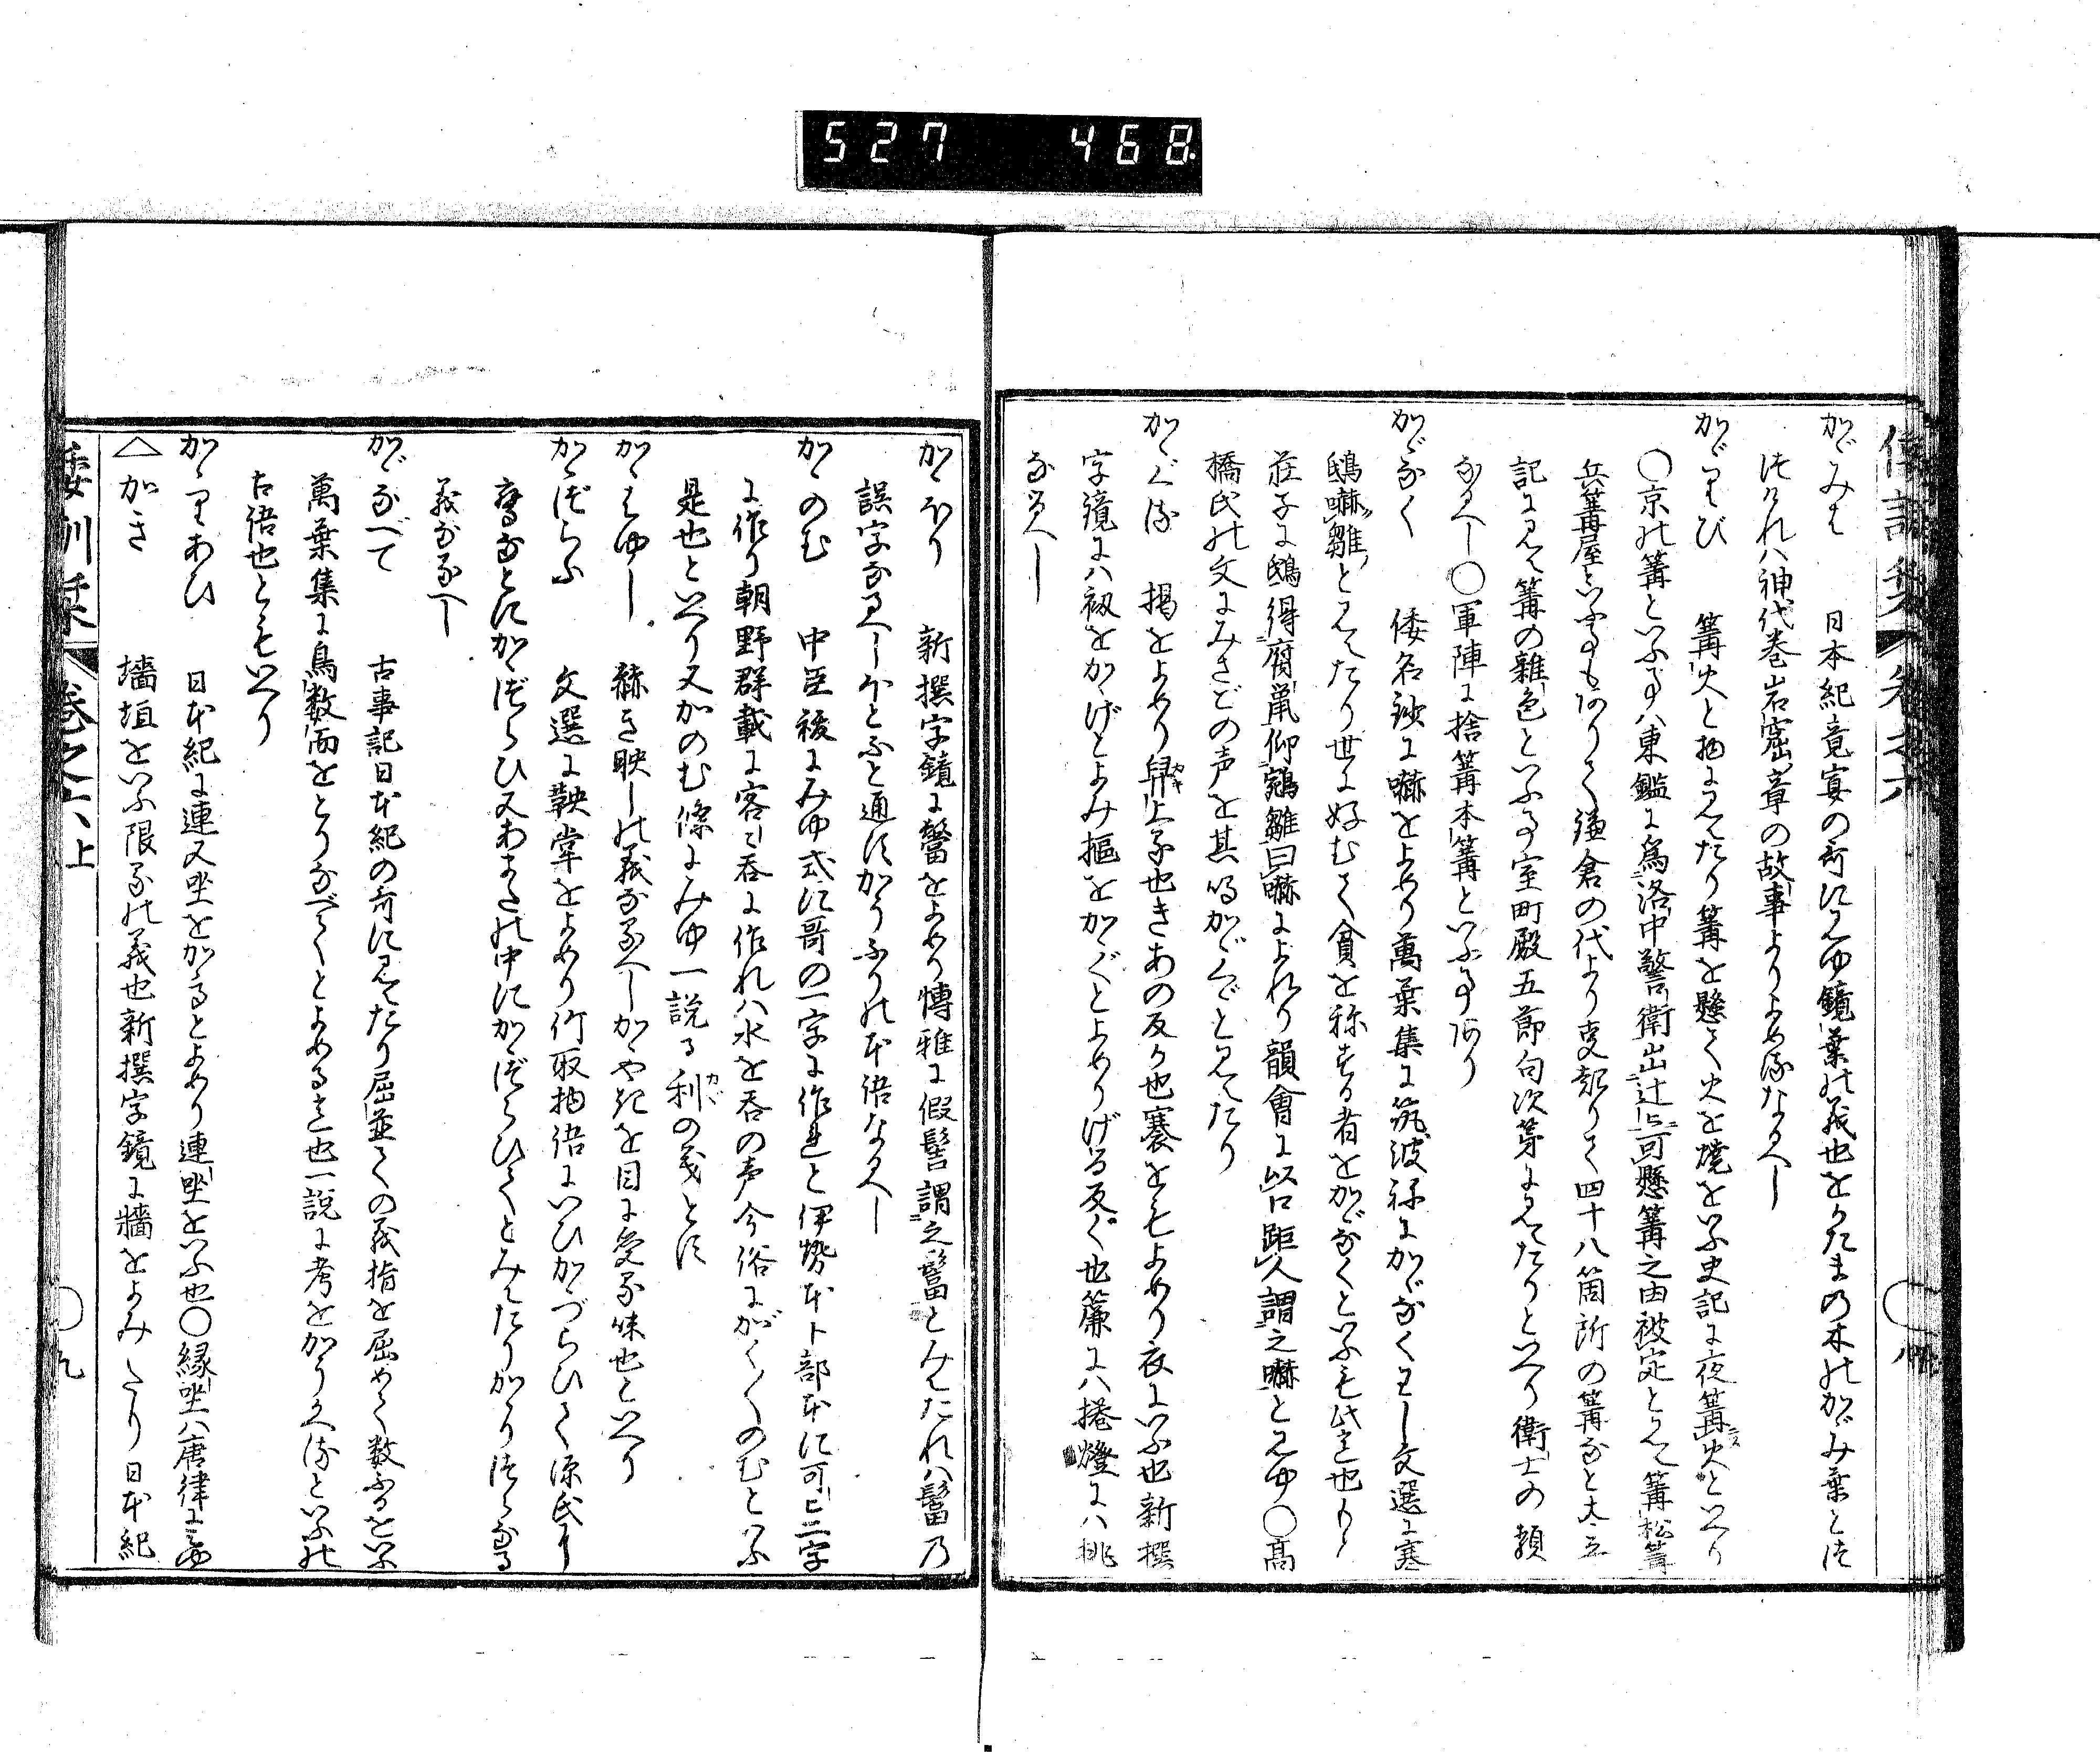 527 468
かゞみは 日本紀竟宴の哥にみゆ鏡葉の義也をかたまの木のかゞみ葉とつ
つけれハ神代巻岩窟章の故事よりよめるなるへし
かゞりび 篝火と物にみえたり篝を懸て火を焼をいふ史記に夜篝火といへり
○京の篝といふ事ハ東鑑に為洛中警衛出辻々可懸篝之由被定とみえ篝松篝
兵篝屋といふ事もありて鎌倉の代より事起りて四十八箇所の篝なと太平
記にみえ篝の雑色といふ事室町殿五節句次第にみえたりといへり衛士の類
なるへし○軍陣に捨篝本篝といふ事あり
かゞなく 倭名鈔に嚇をよめり萬葉集に筑波ねにかゞなくわし文選に寒
鴟嚇雛とみえたり世に好むて貪を称する者をかゞなくといふも此意也もと
荘子に鴟得腐鼠仰鵷雛曰嚇によれり韻會に以口距人謂之嚇とみゆ○高
橋氏の文にみさごの声を其鳴かゞくとみえたり
かゝぐる 掲をよめり舁上る也きあの反か也褰をもよめり衣にいふ也新撰
字鏡にハ扱をかゝげとよみ摳をかゝぐとよめりげる反ぐ也簾にハ捲燈にハ挑
なるへし
かゝほり 新撰字鏡に鬠をよめり博雅に假髻謂之䯰とみえたれハ䯰乃
誤字なるへしほとふと通すかうふりの本語なるへし
かゝのむ 中臣祓にみゆ式に哥の一字に作れと伊勢本卜部本に可々二字
に作り朝野群載に客々呑に作れハ水を呑の声今俗にがくがくのむといふ
是也といへり又かのむ條にみゆ一説に利の義とす
かゝはゆし 赫き映しの義なるへしかゝやきを目に受る味也といへり
かゝづらふ 文選に鞅掌をよめり竹取物語にいひかゝづらひて源氏に
事なとにかゝづらひ又あまたの中にかゝづらひてとみえたりかゝりつらなる
義なるへし
かゞなべて 古事記日本紀の哥にみえたり屈並ての義指を屈めて数ふるをいふ
萬葉集に鳥数面をとりなべてとよめる意也一説に考をかうかへるといふの
古語也ともいへり
かゝりあひ 日本紀に連又坐をかゝるとよめり連坐をいふ也○縁坐ハ唐律にみゆ
△かき 墻垣をいふ限るの義也新撰字鏡に牆をよみたり日本紀
倭訓栞 巻之六上 ○九